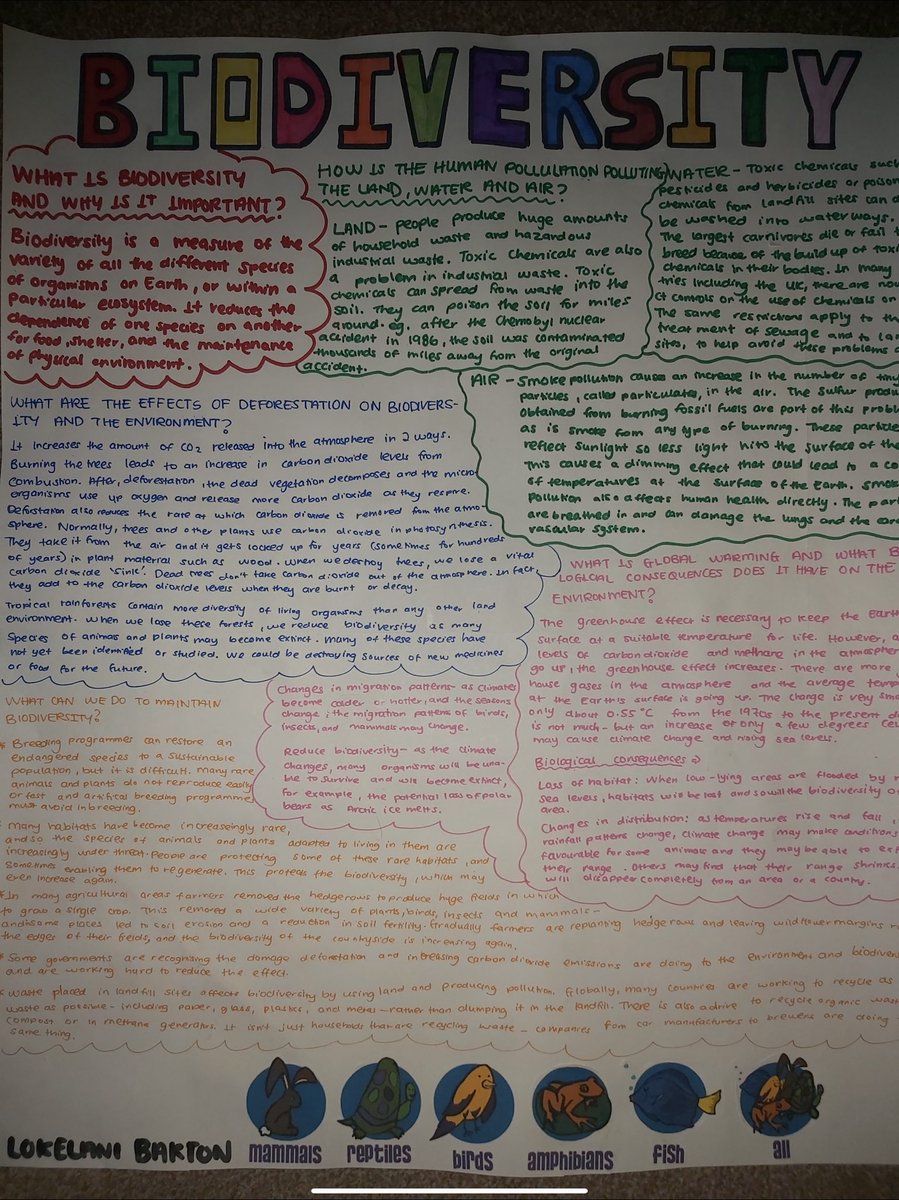 BIODIVERSITY
WHAT IS BIODIVERSITY
AND WHY IS IT IMPORTANT?
Biodiversity is a measure of the
variety of all the different species
of organisms on Earth, or within a
particular ecosystem. It reduces the
dependence of one species on another
for food, shelter, and the maintenance
of physical environment.
HOW IS THE HUMAN POLLULATION POLLUTING
THE LAND, WATER AND AIR?
LAND - people produce huge amounts
of household waste and hazardous
industrial waste. Toxic chemicals are also
a problem in industrial waste. Toxic
chemicals can spread from waste into the
soil. They can poison the soil for miles
around. eg. after the Chernobyl nuclear
accident in 1986, the soil was contaminated
thousands of miles away from the original
accident.
WATER - Toxic chemicals such
pesticides and herbicides or poison
chemicals from landfill sites can
be washed into waterways.
The largest carnivores die or fail t
breed because of the build up of toxi
chemicals in their bodies. In many
tries including the UK, there are now
ct controls on the use of chemicals on
The same restrictions apply to th
treatment of sewage and to la
sites, to help avoid these problems
AIR - Smoke pollution causes an increase in the number of tiny
particles, called particulates, in the air. The sulfur produ
obtained from burning fossil fuels are part of this probl
as is smoke from any type of burning. These particle
reflect sunlight so less light hits the surface of the
This causes a dimming effect that could lead to a co
of temperatures at the surface of the Earth. Smok
pollution also affects human health directly. The par
are breathed in and can damage the lungs and the car
vascular system.
WHAT ARE THE EFFECTS OF DEFORESTATION ON BIODIVERS-
ITY AND THE ENVIRONMENT?
It increases the amount of CO2 released into the atmosphere in 2 ways.
Burning the trees leads to an increase in carbon dioxide levels from
combustion. After, deforestation, the dead vegetation decomposes and the micro
organisms use up oxygen and release more carbon dioxide as they respire.
Defostation also reduces the rate at which carbon dioxide is removed from the atmo-
sphere. Normally, trees and other plants use carbon dioxide in photosynthesis.
They take it from the air and it gets locked up for years (sometimes for hundreds
of years) in plant material such as wood. When we destroy trees, we lose a vital
carbon dioxide 'sink'. Dead trees don't take carbon dioxide out of the atmosphere. In fact,
they add to the carbon dioxide levels when they are burnt or decay.
Tropical rainforests contain more diversity of living organisms than any other land
environment. When we lose these forests, we reduce biodiversity as many
species of animals and plants may become extinct. Many of these species have
not yet been identified or studied. We could be destroying sources of new medicines
or food for the future.
WHAT IS GLOBAL WARMING AND WHAT B
LOGICAL CONSEQUENCES DOES IT HAVE ON THE
ENVIRONMENT?
The greenhouse effect is necessary to keep the Earth
surface at a suitable temperature for life. However, a
levels of carbon dioxide and methane in the atmospher
go us, the greenhouse effect increases. There are more
house gases in the atmosphere and the average temp
at the Earth's surface is going up. The change is very sma
only about 0.55°C from the 1970s to the present d
is not much - but an increase of only a few degrees Cel
may cause climate change and rising sea levels.
Biological consequences →
Loss of habitat: when low-lying areas are flooded by r
sea levels, habitats will be lost and so will the biodiversity of
area.
Changes in distribution: as temperatures rise and fall,
rainfall patterns change, climate change may make conditions
favourable for some animals and they may be able to ex
their range. Others may find that their range shrinks.
will disappear completely from an area or a country.
Changes in migration patterns - as climates
become colder or hotter, and the seasons
change; the migration patterns of birds,
insects, and mammals may change.
Reduce biodiversity - as the climate
changes, many organisms will be una-
ble to survive and will become extinct,
for example, the potential loss of polar
bears as Arctic ice melts.
WHAT CAN WE DO TO MAINTAIN
BIODIVERSITY?
* Breeding programmes can restore an
endangered species to a sustainable
population, but it is difficult. Many rare
animals and plants do not reproduce easily
or fast and artifical breeding programme
must avoid inbreeding.
* many habitats have become increaseingly rare,
and so the species of animals and plants adapted to living in them are
increasingly under threat. People are protecting some of these rare habitats, and
sometimes enabling them to regenerate. This protects the biodiversity, which may
even increase again.
* In many agricultural areas farmers removed the hedgerows to produce huge fields in which
to grow a single crop. This removed a wide variety of plants, birds, insects and mammals -
and some places led to soil erosion and a reduction in soil fertility. Gradually farmers are replanting hedgerows and leaving wildflower margins
the edges of their fields, and the biodiversity of the countryside is increasing again.
* Some governments are recognising the damage deforestation and increasing carbon dioxide emissions are doing to the environment and biodivers
and are working hard to reduce the effect.
* Waste placed in landfill sites affects biodiversity by using land and producing pollution. Globally, many countries are working to recycle as
waste as possible - including paper, glass, plastics, and metal - rather than dumping it in the landfill. There is also a drive to recycle organic was
compost or in methane generators. It isn't just households that are recycling waste - companies from car manufacturers to brewers are doing
same thing.
LOKELANI BARTON
mammals reptiles birds amphibians fish all